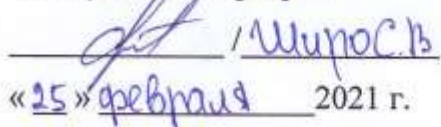 / Широ С.В
«25» февраля 2021 г.